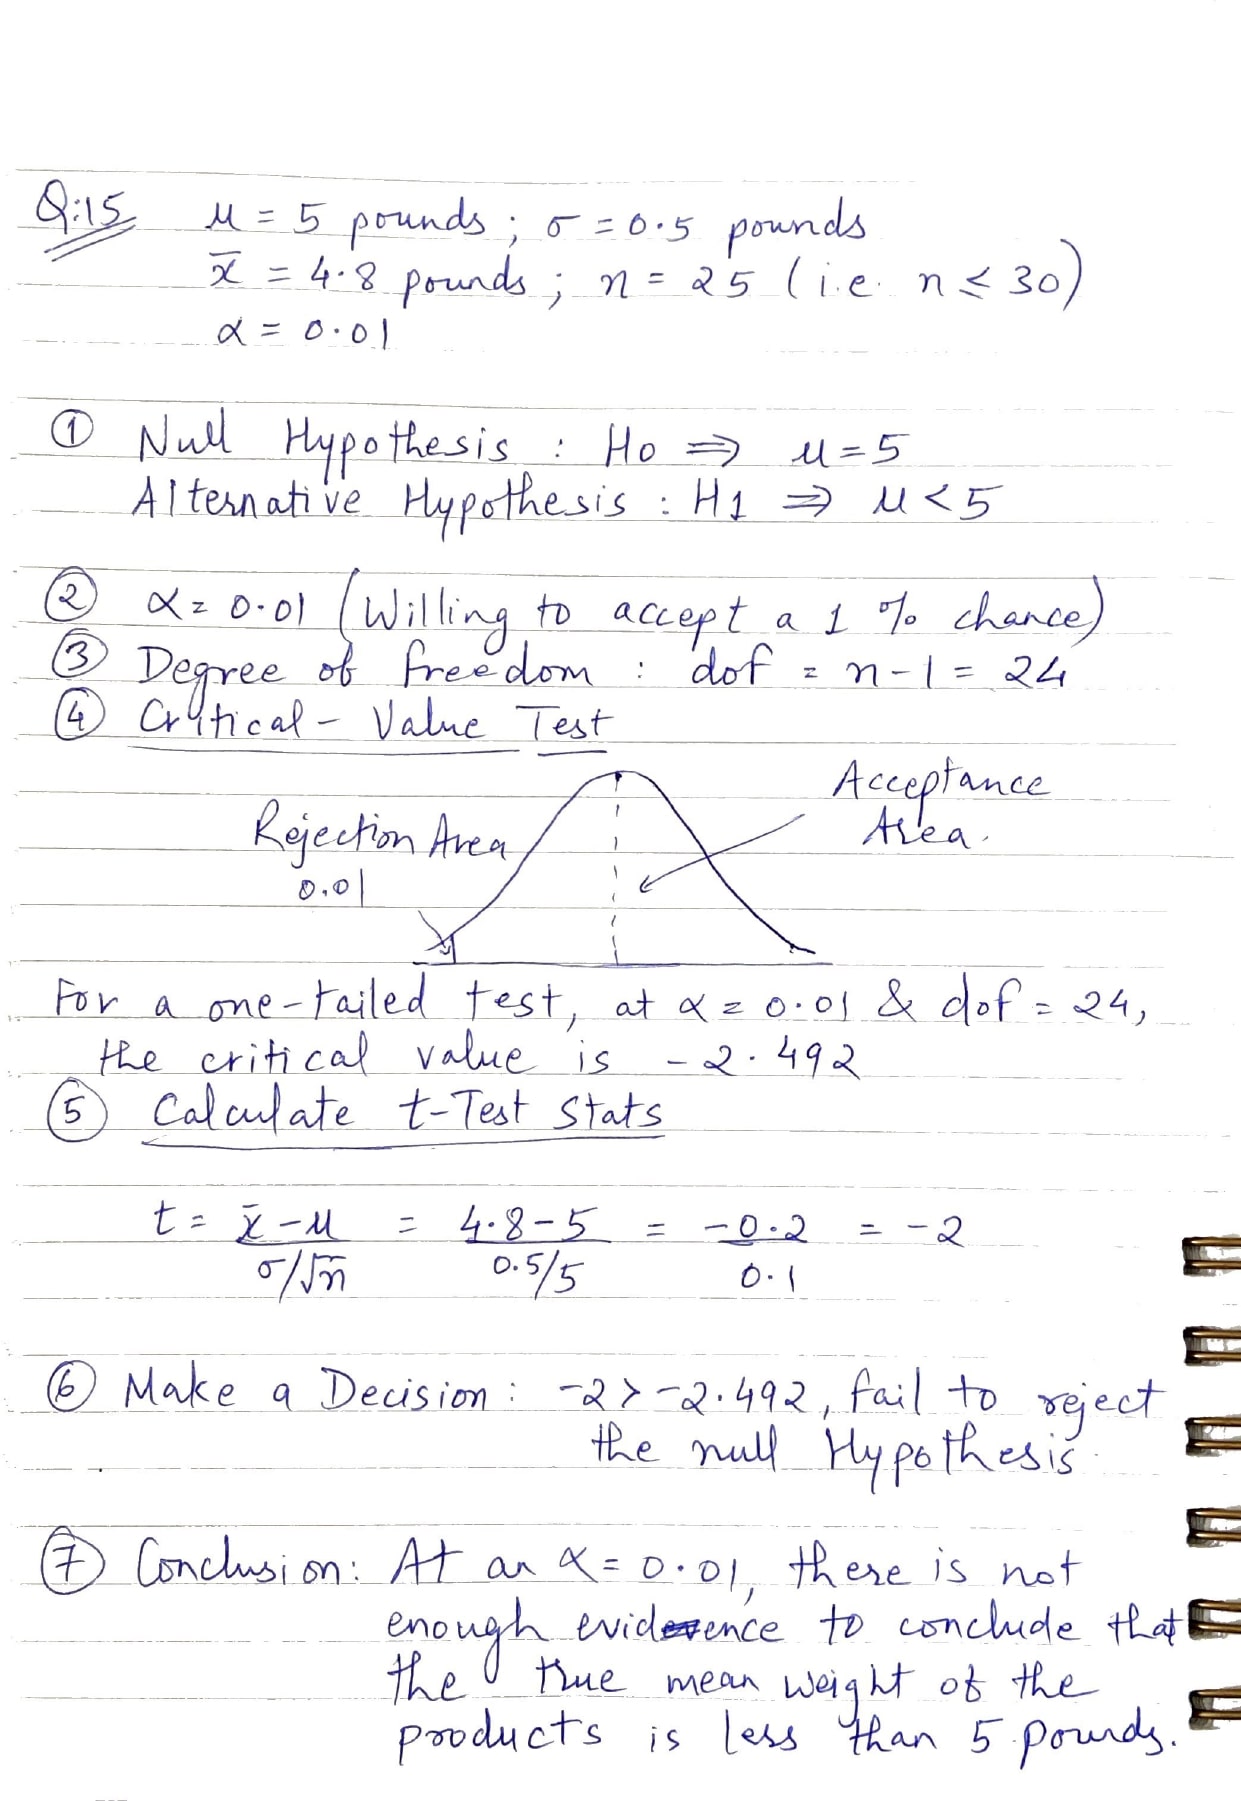 Q:15 μ = 5 pounds ; σ = 0.5 pounds
x̄ = 4.8 pounds ; n = 25 (i.e. n ≤ 30)
α = 0.01
① Null Hypothesis : H0 ⇒ μ = 5
Alternative Hypothesis : H1 ⇒ μ < 5
② α = 0.01 (Willing to accept a 1 % chance)
③ Degree of freedom : dof = n-1 = 24
④ Critical - Value Test
Acceptance
Area.
Rejection Area
0.01
For a one-tailed test, at α = 0.01 & dof = 24,
the critical value is -2.492
⑤ Calculate t-Test Stats
t = (x̄ - μ)/(σ/√n) = (4.8-5)/(0.5/5) = (-0.2)/(0.1) = -2
⑥ Make a Decision : -2 > -2.492, fail to reject
the null Hypothesis.
⑦ Conclusion: At an α = 0.01, there is not
enough evidence to conclude that
the true mean weight of the
products is less than 5 pounds.